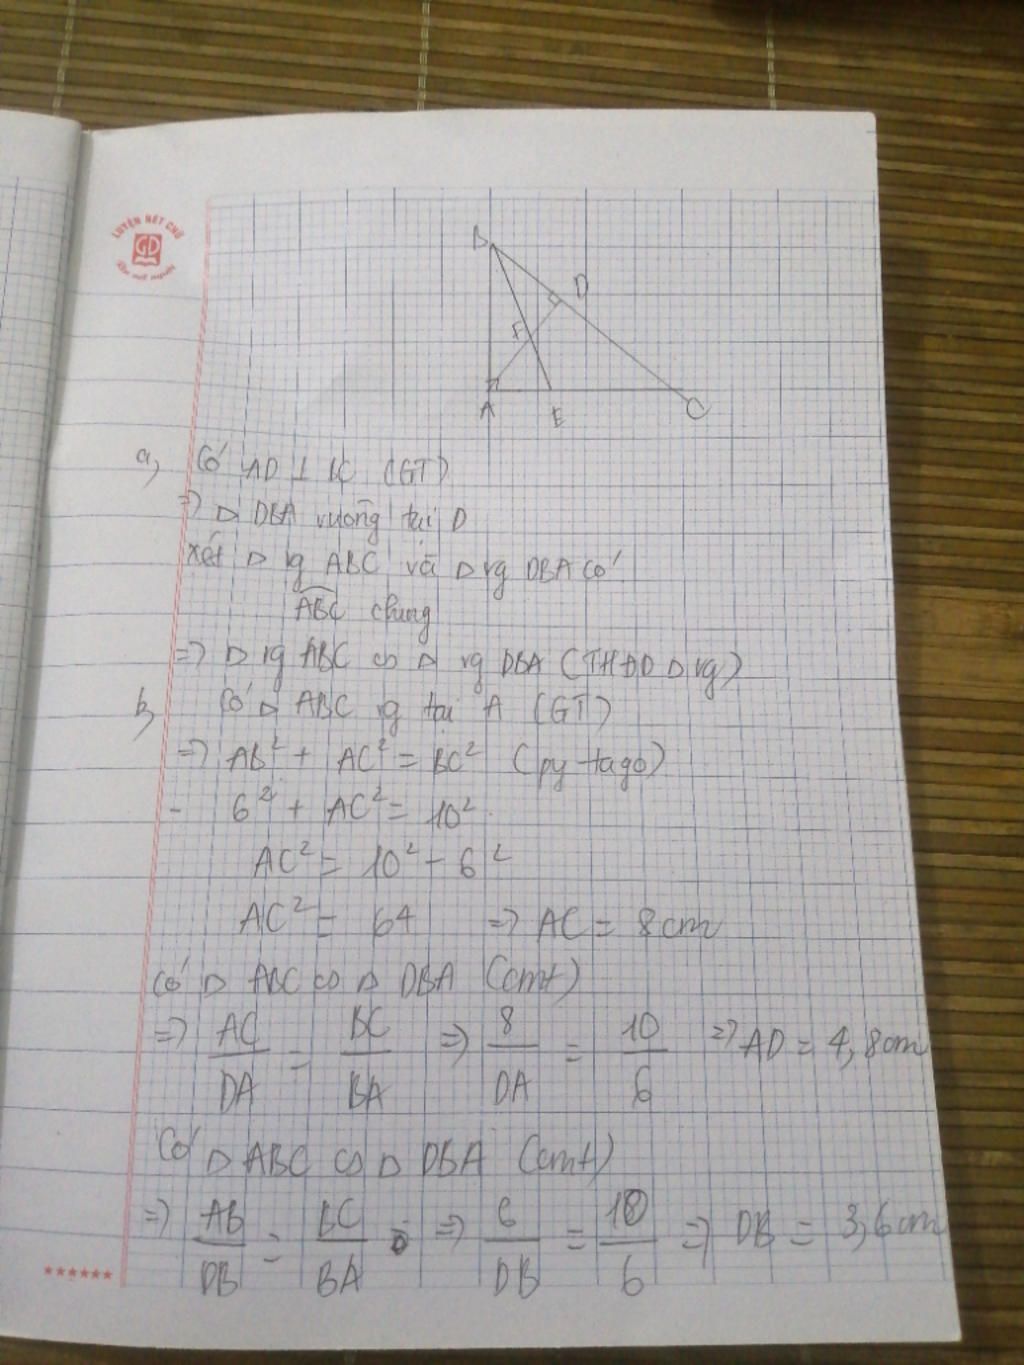 LUYỆN NÉT CHỮ
GD
Rèn nết người
B
D
F
A
E
C
a, Có AD ⊥ BC (GT)
=> Δ DBA vuông tại D
Xét Δ vg ABC và Δ vg DBA có
ABC chung
=> Δ vg ABC ∽ Δ vg DBA (THĐD Δ vg)
b, Có Δ ABC vg tại A (GT)
=> AB² + AC² = BC² (py-tago)
- 6² + AC² = 10²
AC² = 10² - 6²
AC² = 64 => AC = 8cm
Có Δ ABC ∽ Δ DBA (cmt)
=> AC/DA = BC/BA => 8/DA = 10/6 => AD = 4,8cm
Có Δ ABC ∽ Δ DBA (cmt)
=> AB/DB = BC/BA => 6/DB = 10/6 => DB = 3,6cm
******